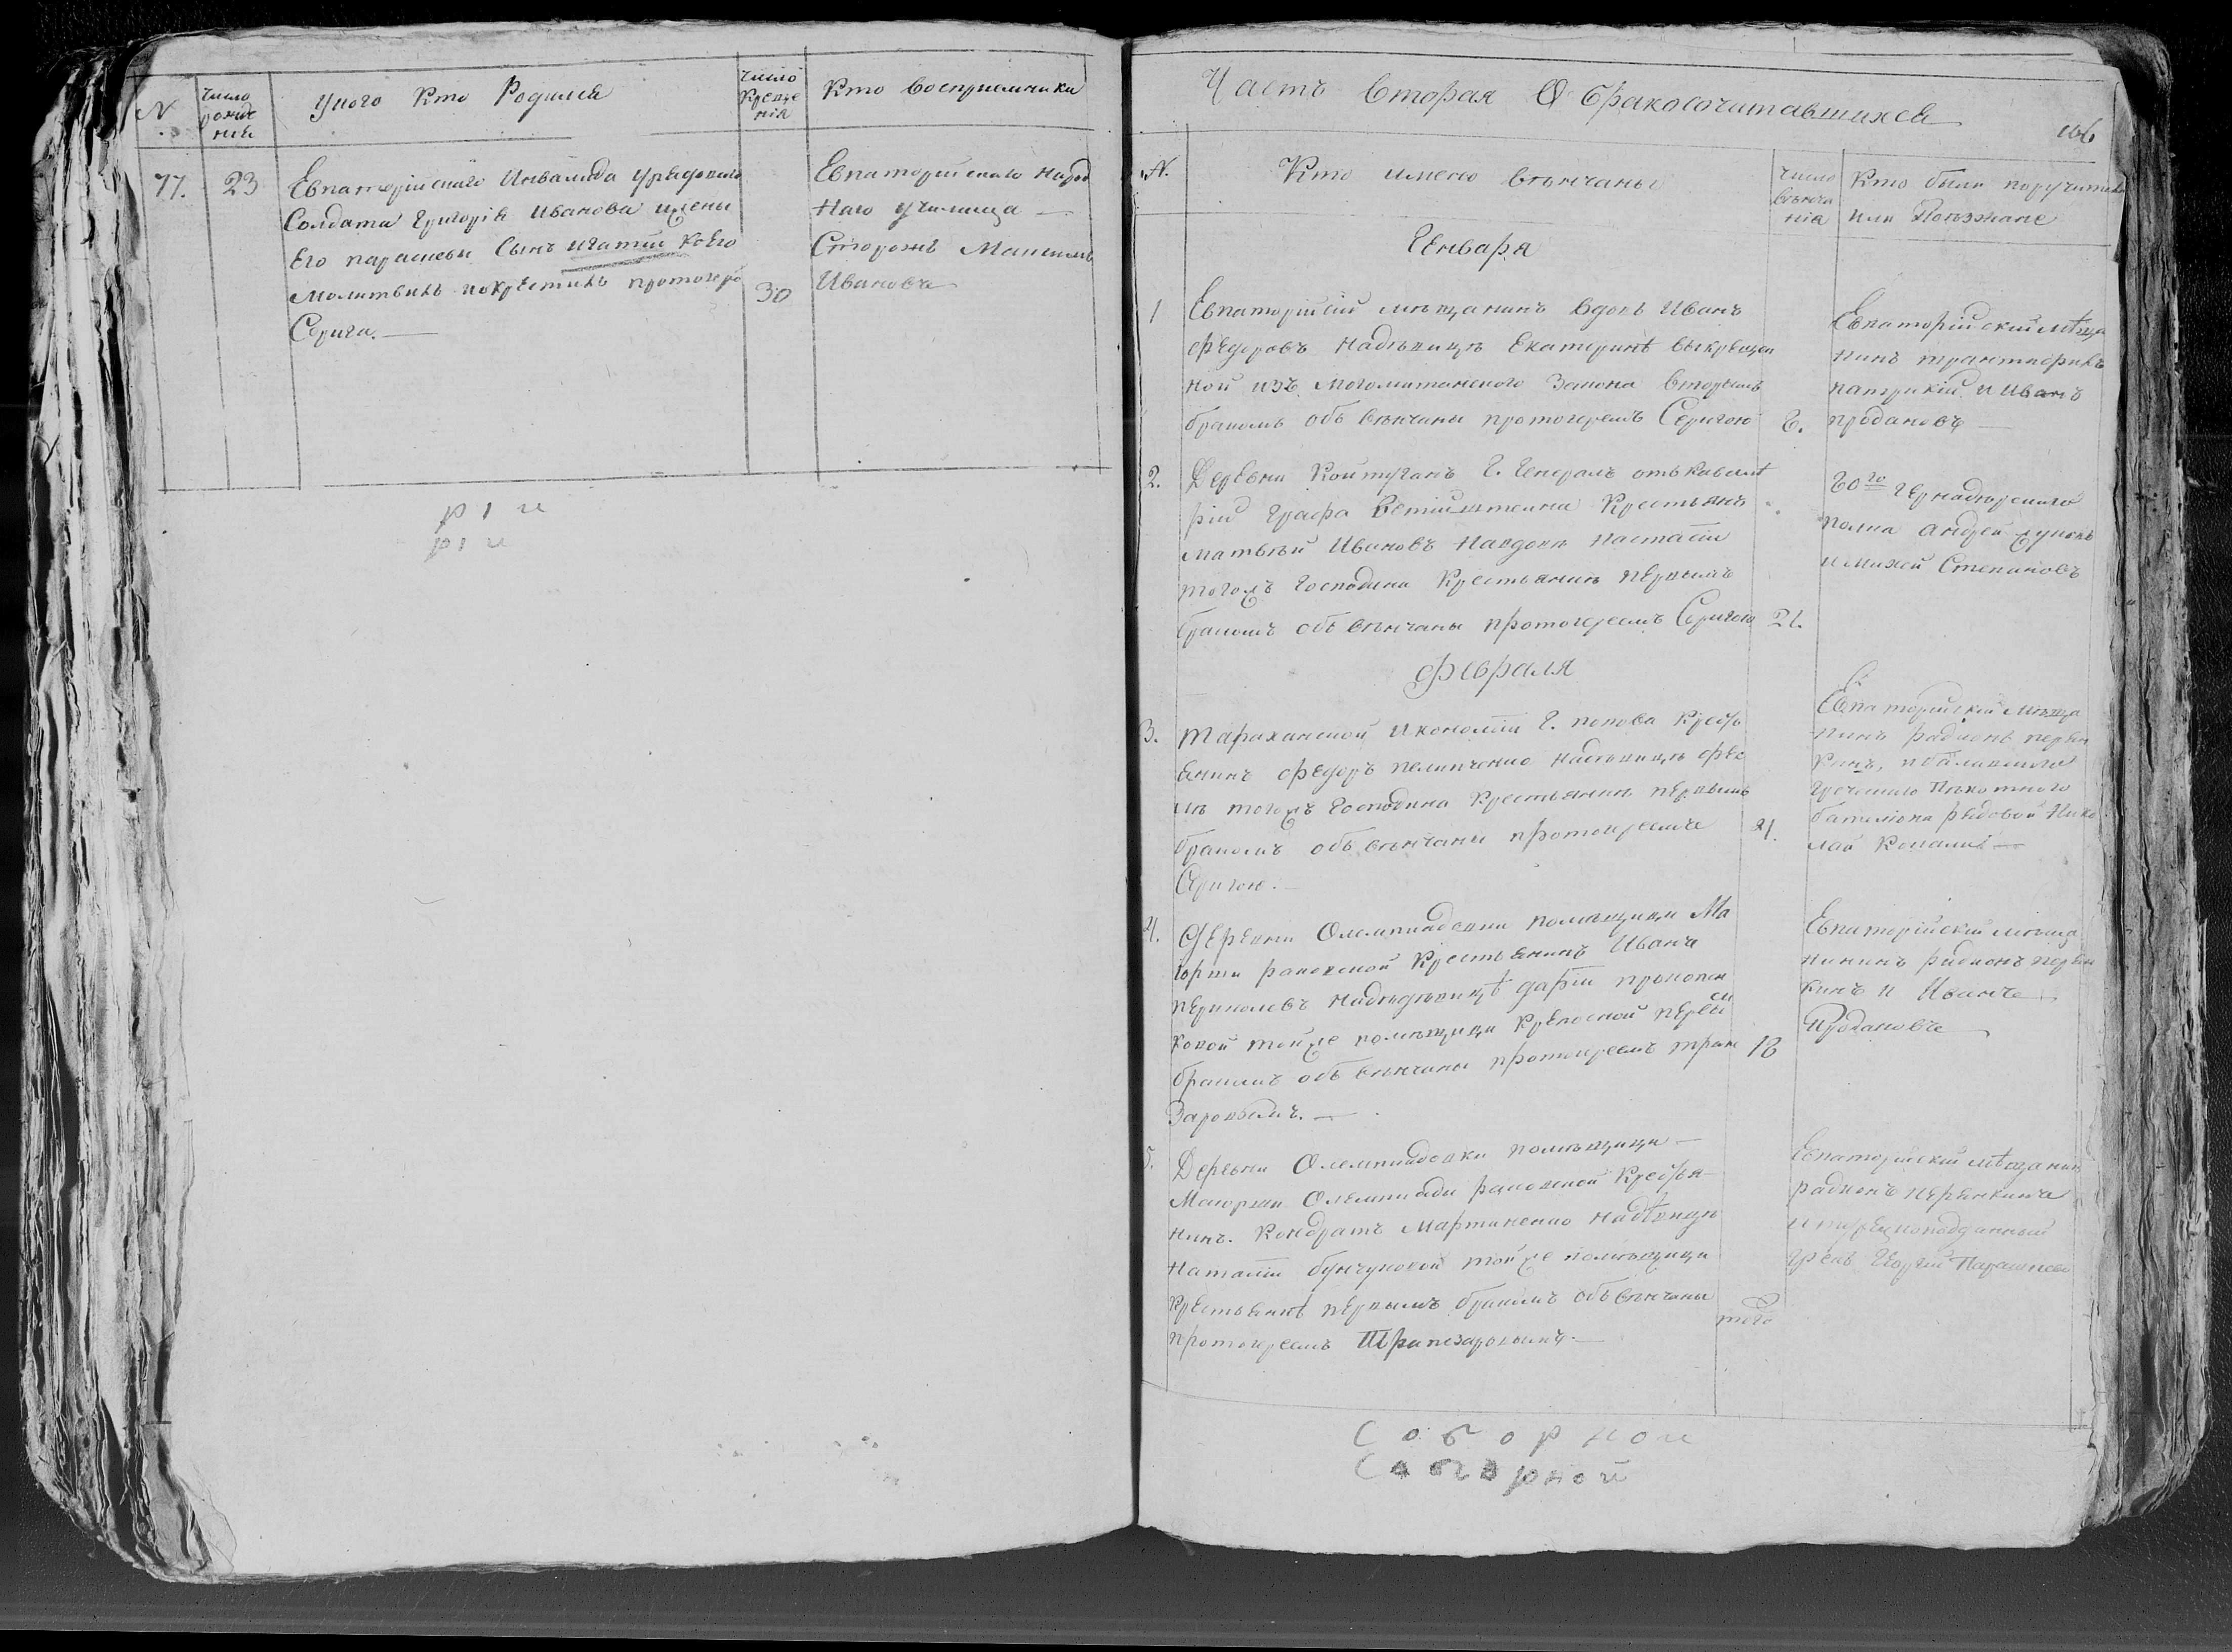 N
число рожде нія
У кого Кто Родился
число Креще нія
Кто Восприемники
77.
23
Евпаторійскаго Инвалида урядоваго
Солдата Григорія Иванова и жены
Его параскевы Сынъ игатій Коего
Молитвилъ и окрестилъ протоиере
Серига.
30
Евпаторийскаго Народ
Наго училища
Сторожъ
Ивановъ
Часть Вторая О бракосочитавшихся
166
N.
Кто имено вѣнчаны
число вѣнча нія
Кто были поручители
или Поезжане
Генваря
1
Евпаторійсій мѣщанинъ вдовъ Иванъ
Федоровъ на дѣвицѣ Екатеринѣ выкрещен
ной изъ могомитанского Закона вторымъ
бракомъ обвѣнчаны протоиереемъ Серигою
6.
Евпаторійский мѣща
нинъ
патрикій и Иванъ
продановъ
2.
Деревни Койтуганъ Г. Генералъ отъ кавалѣ
ріи Графа Крестьянъ
матвѣй Ивановъ на вдовѣ настасіи
тогожъ Господина Крестьянинѣ первымъ
бракомъ обвѣнчаны протоиереемъ Серигою
21.
полка андрей
и михей Степановъ
Февраля
3.
Тараханской Икономіи Г. попова Кресть
янинъ Федоръ пелипченко на дѣвицѣ Фео
лѣ тогожъ Господина Крестьянинѣ первымъ
бракомъ обвѣнчаны протоиереемъ
Серигою.
4.
Евпаторийскій Мѣща
нинъ радионъ перви
кинъ, и балаклаского
Греческаго Пѣхотного
баталіона рядовой Нико
лай
4.
Деревни Олемпиадовки помѣщицы Ма
іорши раковской Крестьянинъ Иванъ
на дѣвицѣ дарїи прокопен
ковой тойже помѣщици Крепосной первы
бракомъ обвѣнчаны протоиереемъ трапе
Заровымъ.
18
Евпаторійскій мѣща
нинъ радионъ перви
кинъ и Иванъ
Продановъ
5.
Деревни Олемпиадовки помѣщици
Маіорши Олемпиади раковской Крестья
нинъ. Кондратъ Мартиненко на дѣвицѣ
Наталіи бунчуковой тойже помѣщици
Крестьянкѣ первымъ бракомъ обвѣнчаны
протоиереемъ Трапезаровымъ.
того
Евпаторийскій мѣщанин
радионъ первикинъ
и турецкоподданный
грекъ Георгій
Соборнои
Соборной